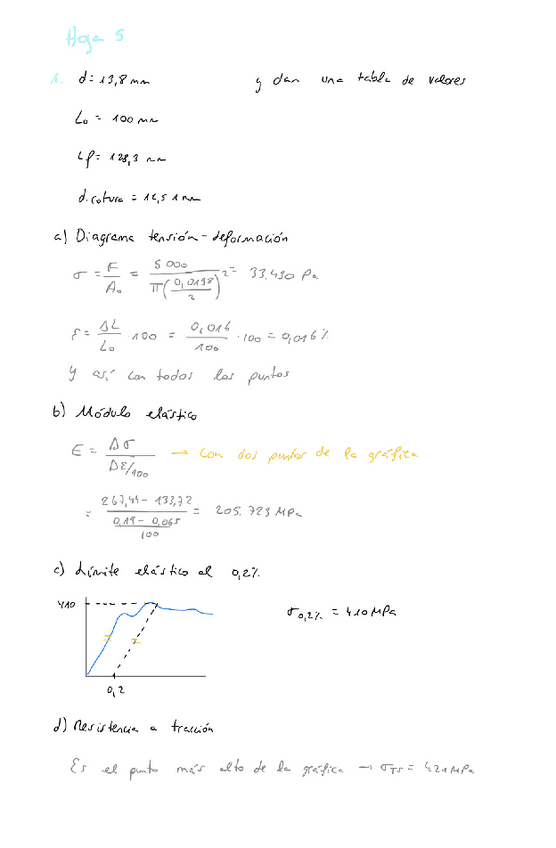 Hoja 5
1. d = 13,8 mm y dan una tabla de valores
L₀ = 100 mm
Lf = 128,3 mm
d.rotura = 16,51 mm
a) Diagrama tensión-deformación
σ = F/A₀ = 5 000/π(0,0138/2)² = 33.430 Pa
ε = ΔL/L₀ · 100 = 0,016/100 · 100 = 0,016 %
Y así con todos los puntos
b) Módulo elástico
E = Δσ/Δε/100 → Con dos puntos de la gráfica
= 267,44 - 133,72/0,19 - 0,065/100 = 205.723 MPa
c) Límite elástico al 0,2%
410
σ0,2% = 410 MPa
0,2
d) Resistencia a tracción
Es el punto más alto de la gráfica → σTS = 421 MPa